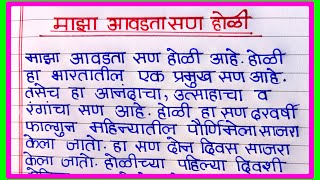 माझा आवडता सण होळी
माझा आवडता सण होळी आहे. होळी
हा भारतातील एक प्रमुख सण आहे.
तसेच हा आनंदाचा, उत्साहाचा व
रंगांचा सण आहे. होळी हा सण दरवर्षी
फाल्गुन महिन्यातील पौर्णिमेला साजरा
केला जातो. हा सण दोन दिवस साजरा
केला जातो. होळीच्या पहिल्या दिवशी